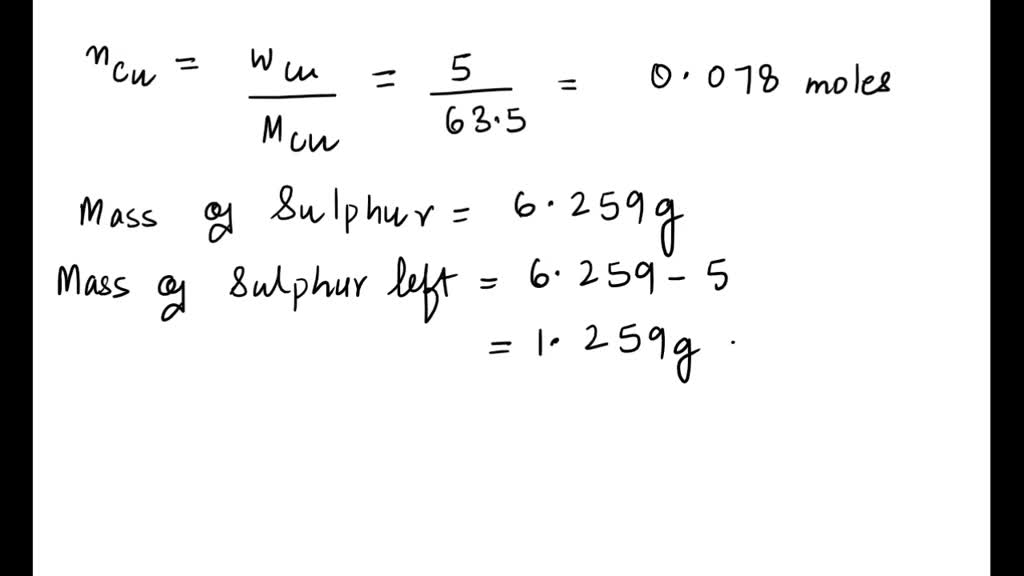 n Cu = W Cu / M Cu = 5 / 63.5 = 0.078 moles
Mass of Sulphur = 6.259g
Mass of Sulphur left = 6.259 - 5
= 1.259g .